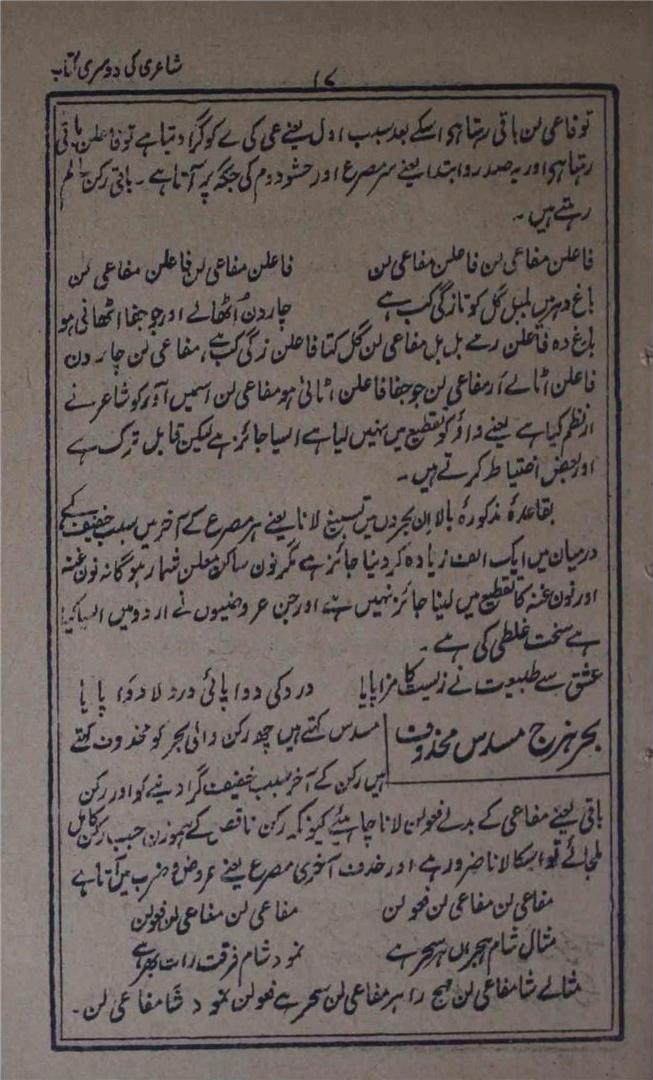 شاعری کی دوسری کتاب
۱۷
تو فاعی لن باقی رہتا ہی اسکے بعد سبب اول یعنے عی کی ے کو گرا دیتا ہے تو فاعلن باقی
رہتا ہی اور یہ صدر و ابتدا یعنے سر مصرع اور حشو دوم کی جگہ پر آتا ہے ۔ باقی رکن سالم
رہتے ہیں ۔
فاعلن مفاعی لن فاعلن مفاعی لن فاعلن مفاعی لن فاعلن مفاعی لن
باغ دہر میں بلبل گل کو تازگی کب ہے چار دن اُٹھالے اور جو جفا اٹھانی ہو
باغ دہ فاعلن رمے بل بل مفاعی لن گل کتا فاعلن زگی کب ہے، مفاعی لن چار دن
فاعلن اٹالے اَر مفاعی لن جو جفا فاعلن اٹانی ہو مفاعی لن اسمیں اَور کو شاعر نے
ار نظم کیا ہے یعنے واؤ کو تقطیع میں نہیں لیا ہے ایسا جائز ہے لیکن قابل ترک ہے
اور بعض احتیاط کرتے ہیں ۔
بقاعدۂ مذکورۂ بالا ان بحروں میں تسبیغ لانا یعنے ہر مصرع کے آخر میں سبب خفیف کے
درمیان میں ایک الف زیادہ کر دینا جائز ہے مگر نون ساکن معلن شمار ہو گا نہ نون غنہ
اور نون غنہ کا تقطیع میں لینا جائز نہیں ہے اور جن عروضیوں نے اردو میں ایسا کیا
ہے سخت غلطی کی ہے ۔
عشق سے طبیعت نے زیست کا مزا پایا درد کی دوا پائی درد لا دوا پایا
بحر ہزج مسدس محذوف
مسدس کہتے ہیں چھ رکن والی بحر کو محذوف کہتے
ہیں رکن کے آخر سبب خفیف گرا دینے کو اور رکن
باقی یعنے مفاعی کے بدلے فعولن لانا چاہیئے کیونکہ رکن ناقص کے ہموزن جب رکن کامل
ملجائے تو اسکا لانا ضرور ہے اور حذف آخری مصرع یعنے عروض و ضرب میں آتا ہے
مفاعی لن مفاعی لن فعولن مفاعی لن مفاعی لن فعولن
مثال شام ہجراں ہر سحر ہے نمود شام فرقت رات بھر ہے
مثالے شا مفاعی لن مہج را ہر مفاعی لن سحر ہے فعولن نمود شَا مفاعی لن ۔